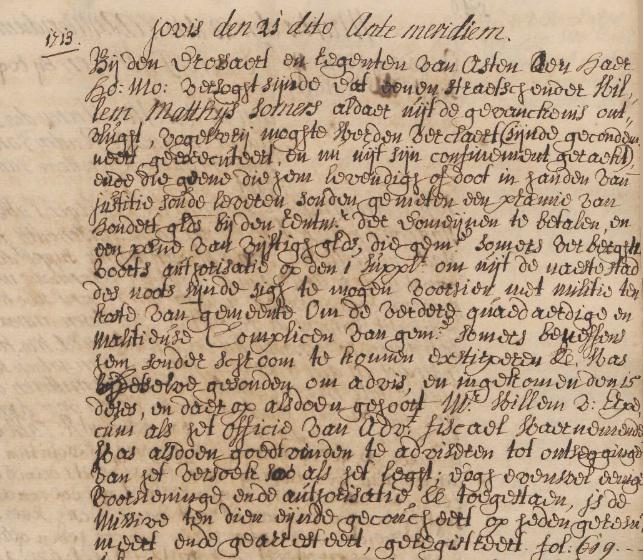 1713.
Jovis den 23 dito Ante meridiem.
Bij den Drossaert en Regenten van Asten aen Haer
Ho: Mo: versoght sijnde dat eenen straetschender Wil-
lem Matthijs Somers aldaer uijt de gevanckenis ont-
vlught, vogelvrij moghte werden verclaert (sijnde gecondem-
neert, geexecuteert, en nu uijt sijn confinement geraekt)
ende die geene die hem levendigh of doot in handen van
justitie soude leveren souden genieten een premie van
hondert glds bij den Rentmr der Domeijnen te betalen, en
een pene van vijftigh glds, die gemte Somers verberght
voorts authorisatie op den 1 supplt om uijt de naeste stad
des noots sijnde sigh te mogen voorsien met militie ten
koste van gemeente om de verdere quaedaerdige en
malitieuse Complicen van gemte Somers beneffens
hem sonder schroom te konnen extirperen &c Was
deselve gesonden om advis, en ingekomen den 18
deses, en daer op alsdoen gehoort Mr Willem v:
cum als het officie van Advt fiscael waernemende
Was alsdoen goedtvinden te adviseren tot ontsegginge
van het versoek soo als het leght; dogh evenwel eenige
voorsieninge ende authorisatie &c toegestaen, is de
Missive ten dien eijnde gecoucheert op heden geresu-
meert ende gearresteert, geregistreert. fol: 699.